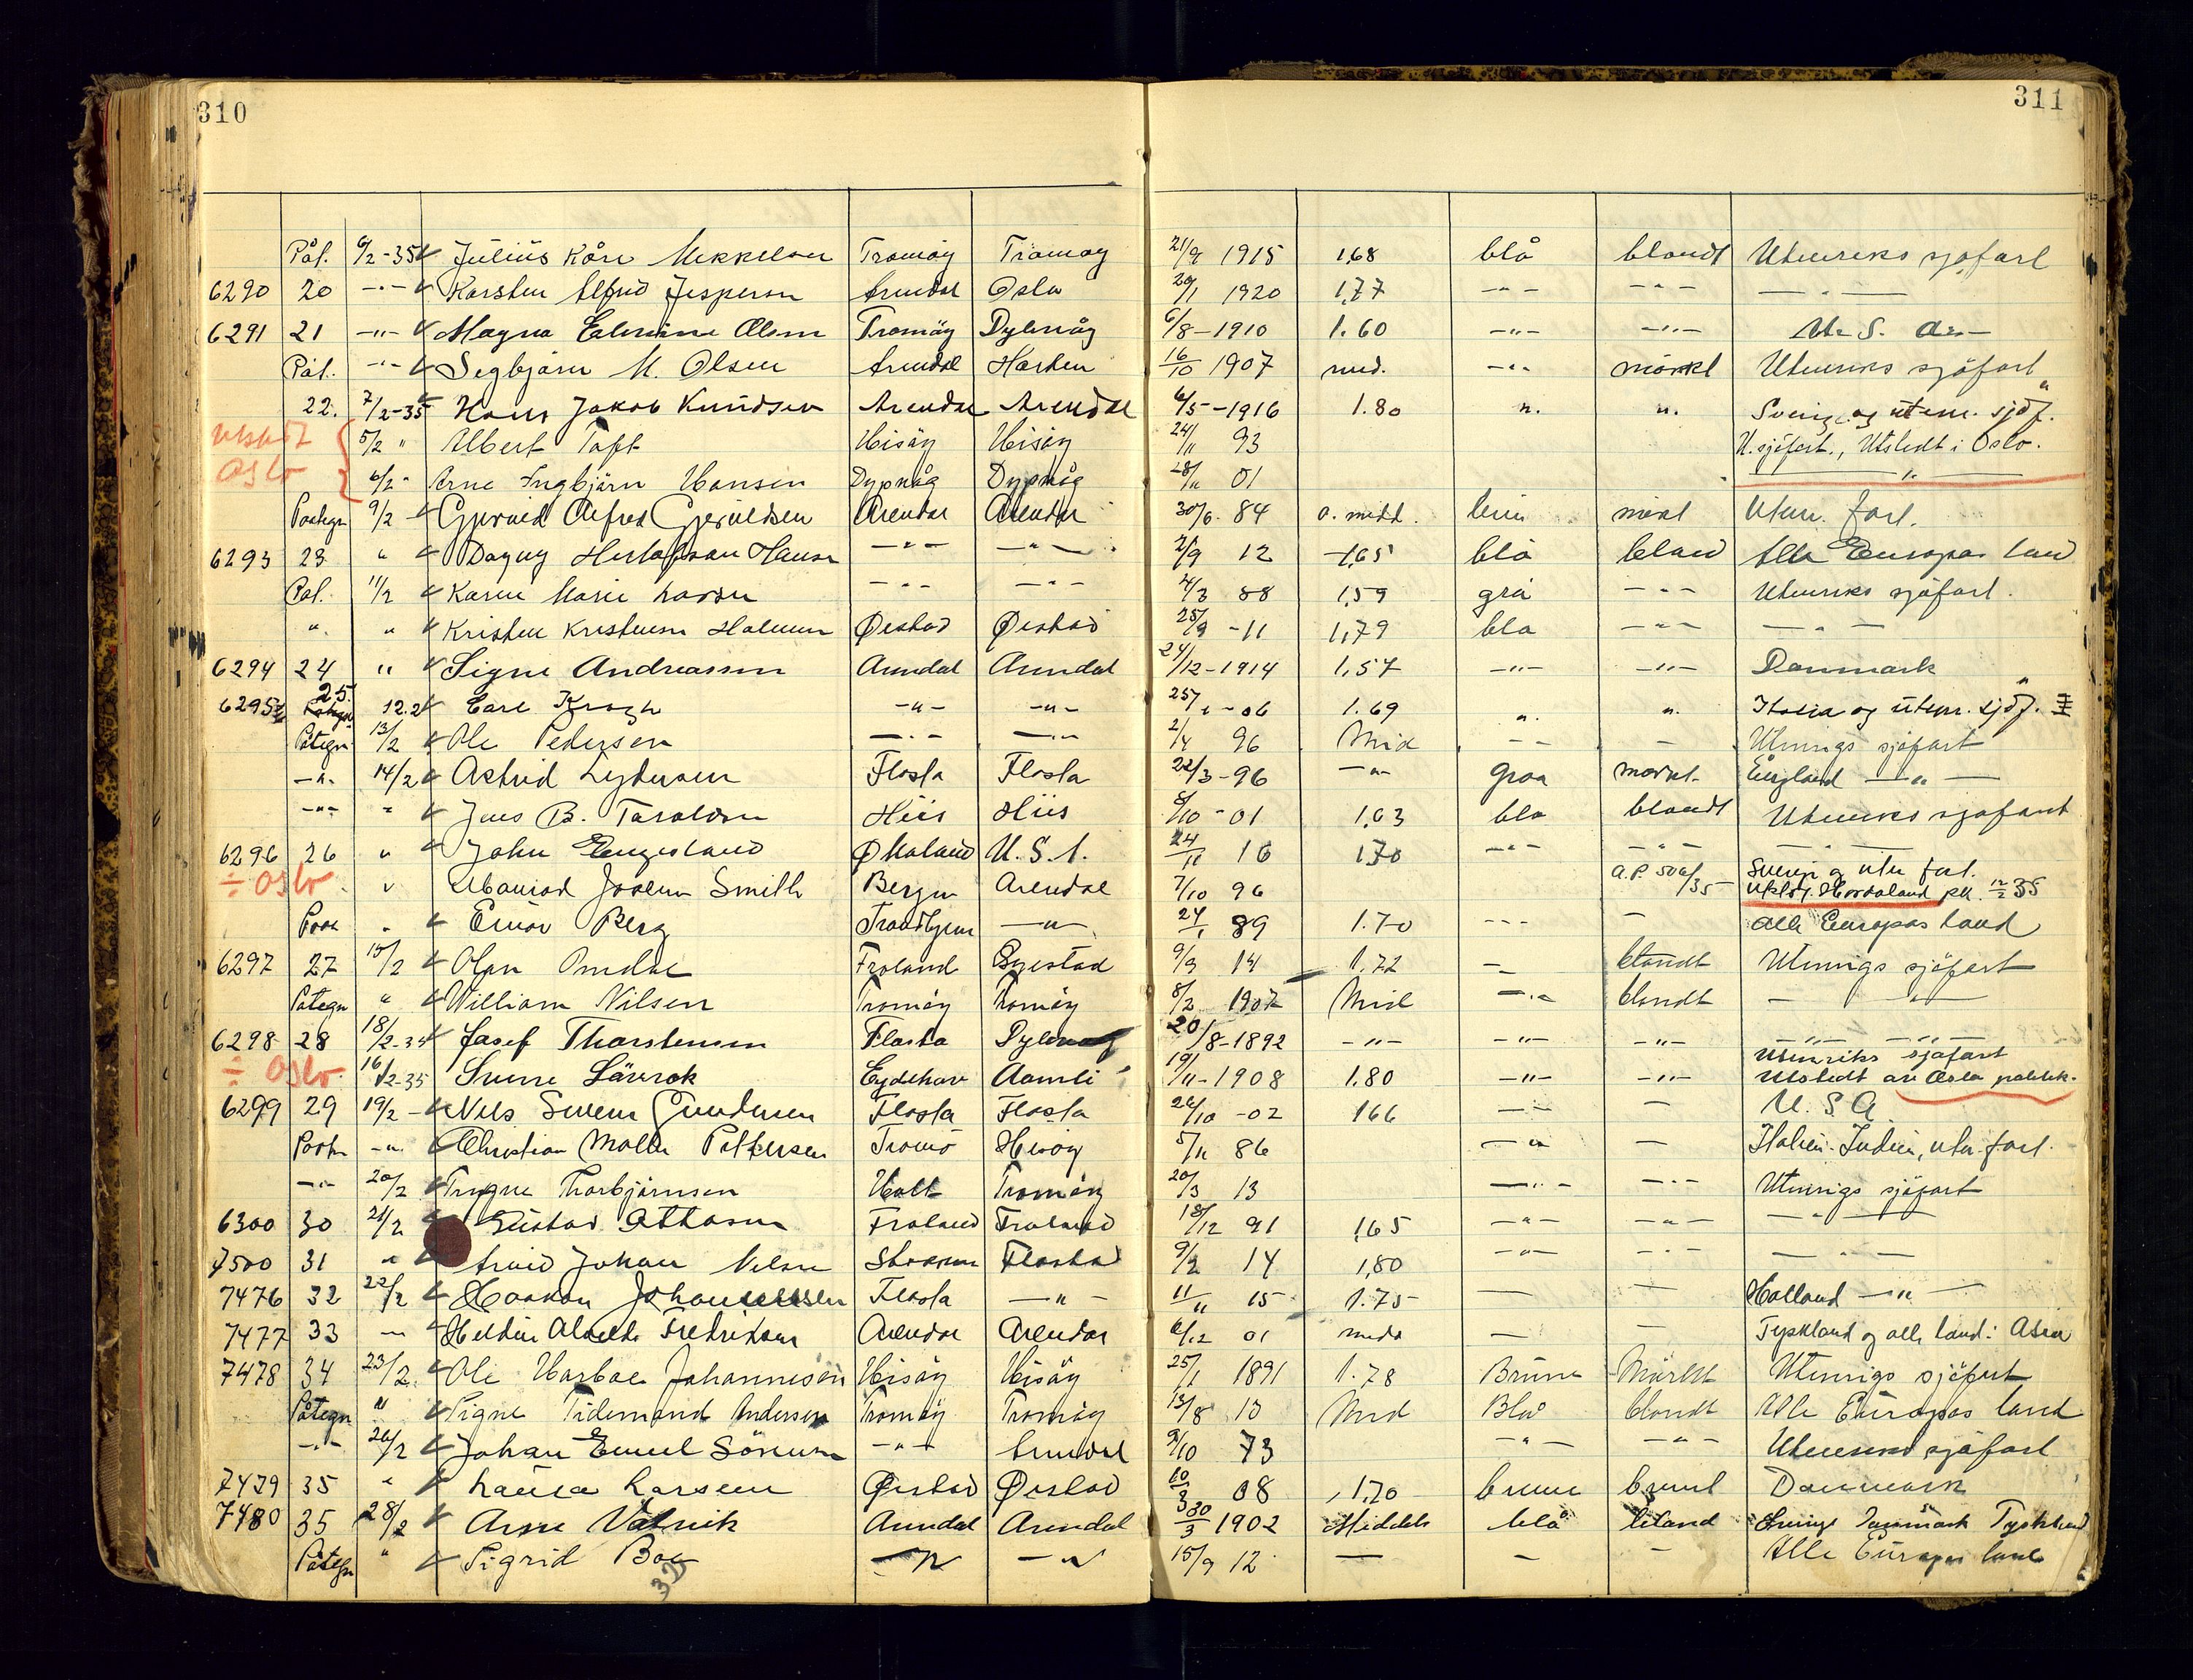 310 311
Påt. 6/2-35 Julius Kåre Mikkelsen Tromøy Tromøy 21/9 1915 1,68 blå blondt Utenriks sjøfart
6290 20 -"- Karsten Alfred Jespersen Arendal Oslo 20/1 1920 1,77 -"- -"- -"-
6291 21 -"- Magna Olsen Tromöy Dybvåg 6/8-1910 1.60 -"- -"- U. S. A.
Påt. -"- Segbjørn M. Olsen Arendal 16/10 1907 med. -"- mörkt Utenriks sjöfart
22. 7/2-35 Hans Jakob Knudsen Arendal Arendal 6/5-1916 1.80 ". ". Sverige og utenr. sjöf.
utstedt Oslo 5/2 " Albert Toft Hisöy Hisöy 24/11 93 U. sjöfart., Utstedt i Oslo.
6/2 " Arne Ingbjörn Hansen Dypvåg Dypvåg 28/11 01 -"-
Påtegn 9/2 Gjeruld Alfred Gjeruldsen Arendal Arendal 30/6. 84 o. midd. mørkt Utenr. fart.
6293 23 " Dagny Hansen -"- -"- 2/9 12 1,65 blå blond Alle Europas land
Påt. 11/2 Karen Marie Larsen -"- -"- 4/3 88 1,59 grå -"- Utenriks sjøfart.
" " Kristen Kristensen Øiestad Øiestad 25/9 -11 1,79 blå -"- -"-
6294 24 " Signe Andreassen Arendal Arendal 24/12-1914 1,57 -"- -"- Danmark
6295 25. 12.2 Carl Krogh -"- -"- 25/1-06 1.69 ". ". Italia og utenr. sjöf.
Påtegn 13/2 Ole Pedersen -"- -"- 2/4 96 Mid - - - Utenrigs sjöfart
-"- 14/2 Astrid Lydersen Flosta Flosta 22/3-96 -"- graa mørkt England -"-
-"- " Jens B. Taraldsen Hiis Hiis 8/10-01 1,63 blå blondt Utenriks sjøfart
6296 26 " John Engesland Ø Moland U.S.A. 24/11 16 170 -"- -"- -"-
÷ Oslo " Josefsen Smith Bergen Arendal 7/10 96 a.p. 506/35 Sverige og uten fart. Hordaland pk. 12/2 35
" Einar Berg Trondhjem -"- 24/1 89 1.70 --- - alle Europas land
6297 27 15/2 Olav Omdal Froland Øyestad 9/3 14 1.72 - blondt Utenrigs sjöfart
Påtegn " William Nilsen Tromöy Tromöy 8/2 1907 Mid -"- blondt -"-
6298 28 18/2-35 Josef Thorstensen Flosta Dybvaag 20/8-1892 -"- -"- -"- -"- -"-
÷ Oslo. 16/2-35 Sverre Eydehavn Aamli 19/11-1908 1.80 -"- -"- Utenriks sjøfart Utstedt av Oslo politik.
6299 29 19/2 Nils Gundersen Flosta Flosta 26/10-02 166 -"- - U. S A
-"- Christian Møller Pettersen Tromö Hisöy 5/11 86 -"- - Italien. Indien, uten. fart.
-"- 20/2 Trygve Thorbjörnsen Holt Tromöy 20/3 13 -"- -"- Utenrigs sjöfart
6300 30 21/2 Gustav Froland Froland 18/12 91 1,65 -"- -"- -"-
7500 31 " Arvid Johan Nilsen Flosta 9/2 14 1,80 -"- -"- -"-
7476 32 22/2 Haakon Johannessen Flosta -"- 11/11 15 1.75 - - Holland -"-
7477 33 -"- Fredriksen Arendal Arendal 6/12 01 midd - - Tyskland og alle land i Asia
7478 34 23/2 Ole Harboe Johannesen Hisöy Hisöy 25/1 1891 1.78 Brune Mörkt Utenrigs sjöfart
Påtegn " Signe Tidemand Andersen Tromöy Tromöy 13/8 13 Mid Blå blondt Alle Europas land
-"- 26/2 Johan Emil Sörensen -"- Arendal 9/10 73 -"- -"- Utenriks sjøfart
7479 35 " Laura Larsen Øiestad Øiestad 10/3 08 1,70 brune brunt Danmark
7480 35 28/2 Arne Vatnik Arendal Arendal 30/3 1902 Middels blå blond Sverige Danmark Tyskland
Påtegn " Sigrid Boe -"- -"- 15/9 12 - - - Alle Europas land